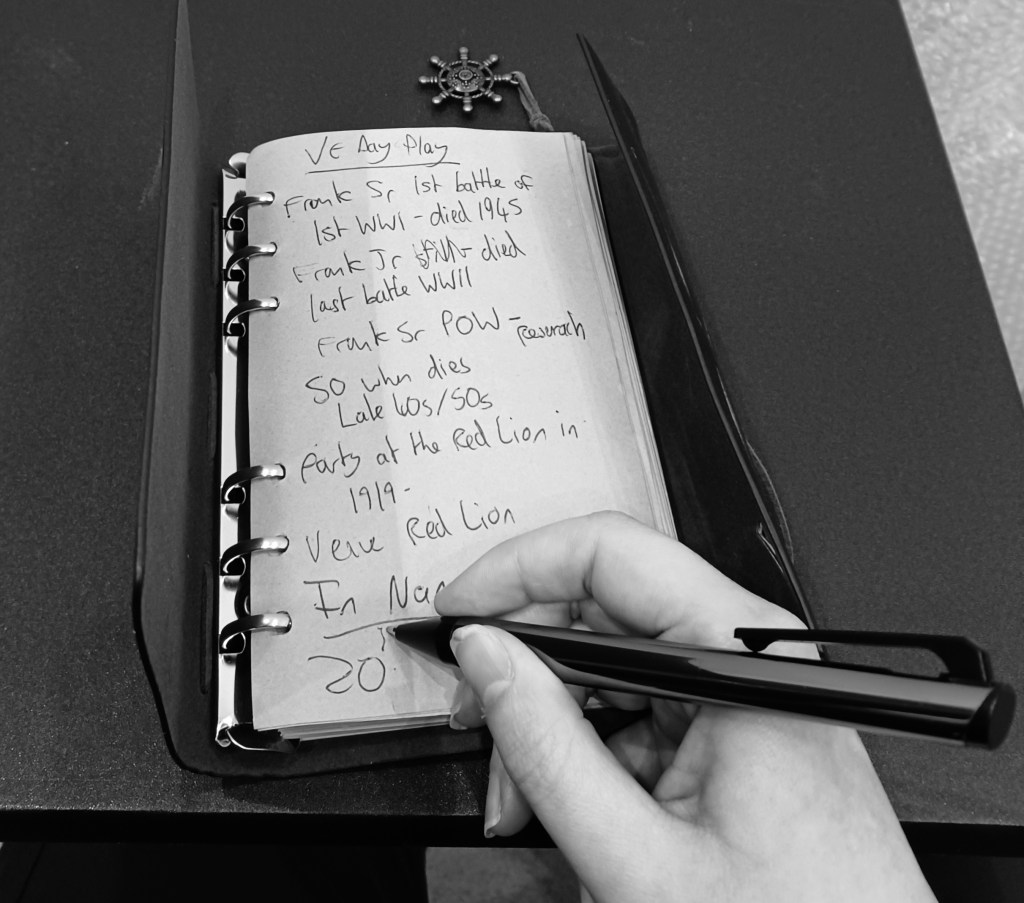 VE Day Play
Frank Sr 1st battle of
1st WW1 - died 1945
Frank Jr died
last battle WWII
Frank Sr POW -
So when dies
Late 40s/50s
Party at the Red Lion in
1919 -
Red Lion
In
20